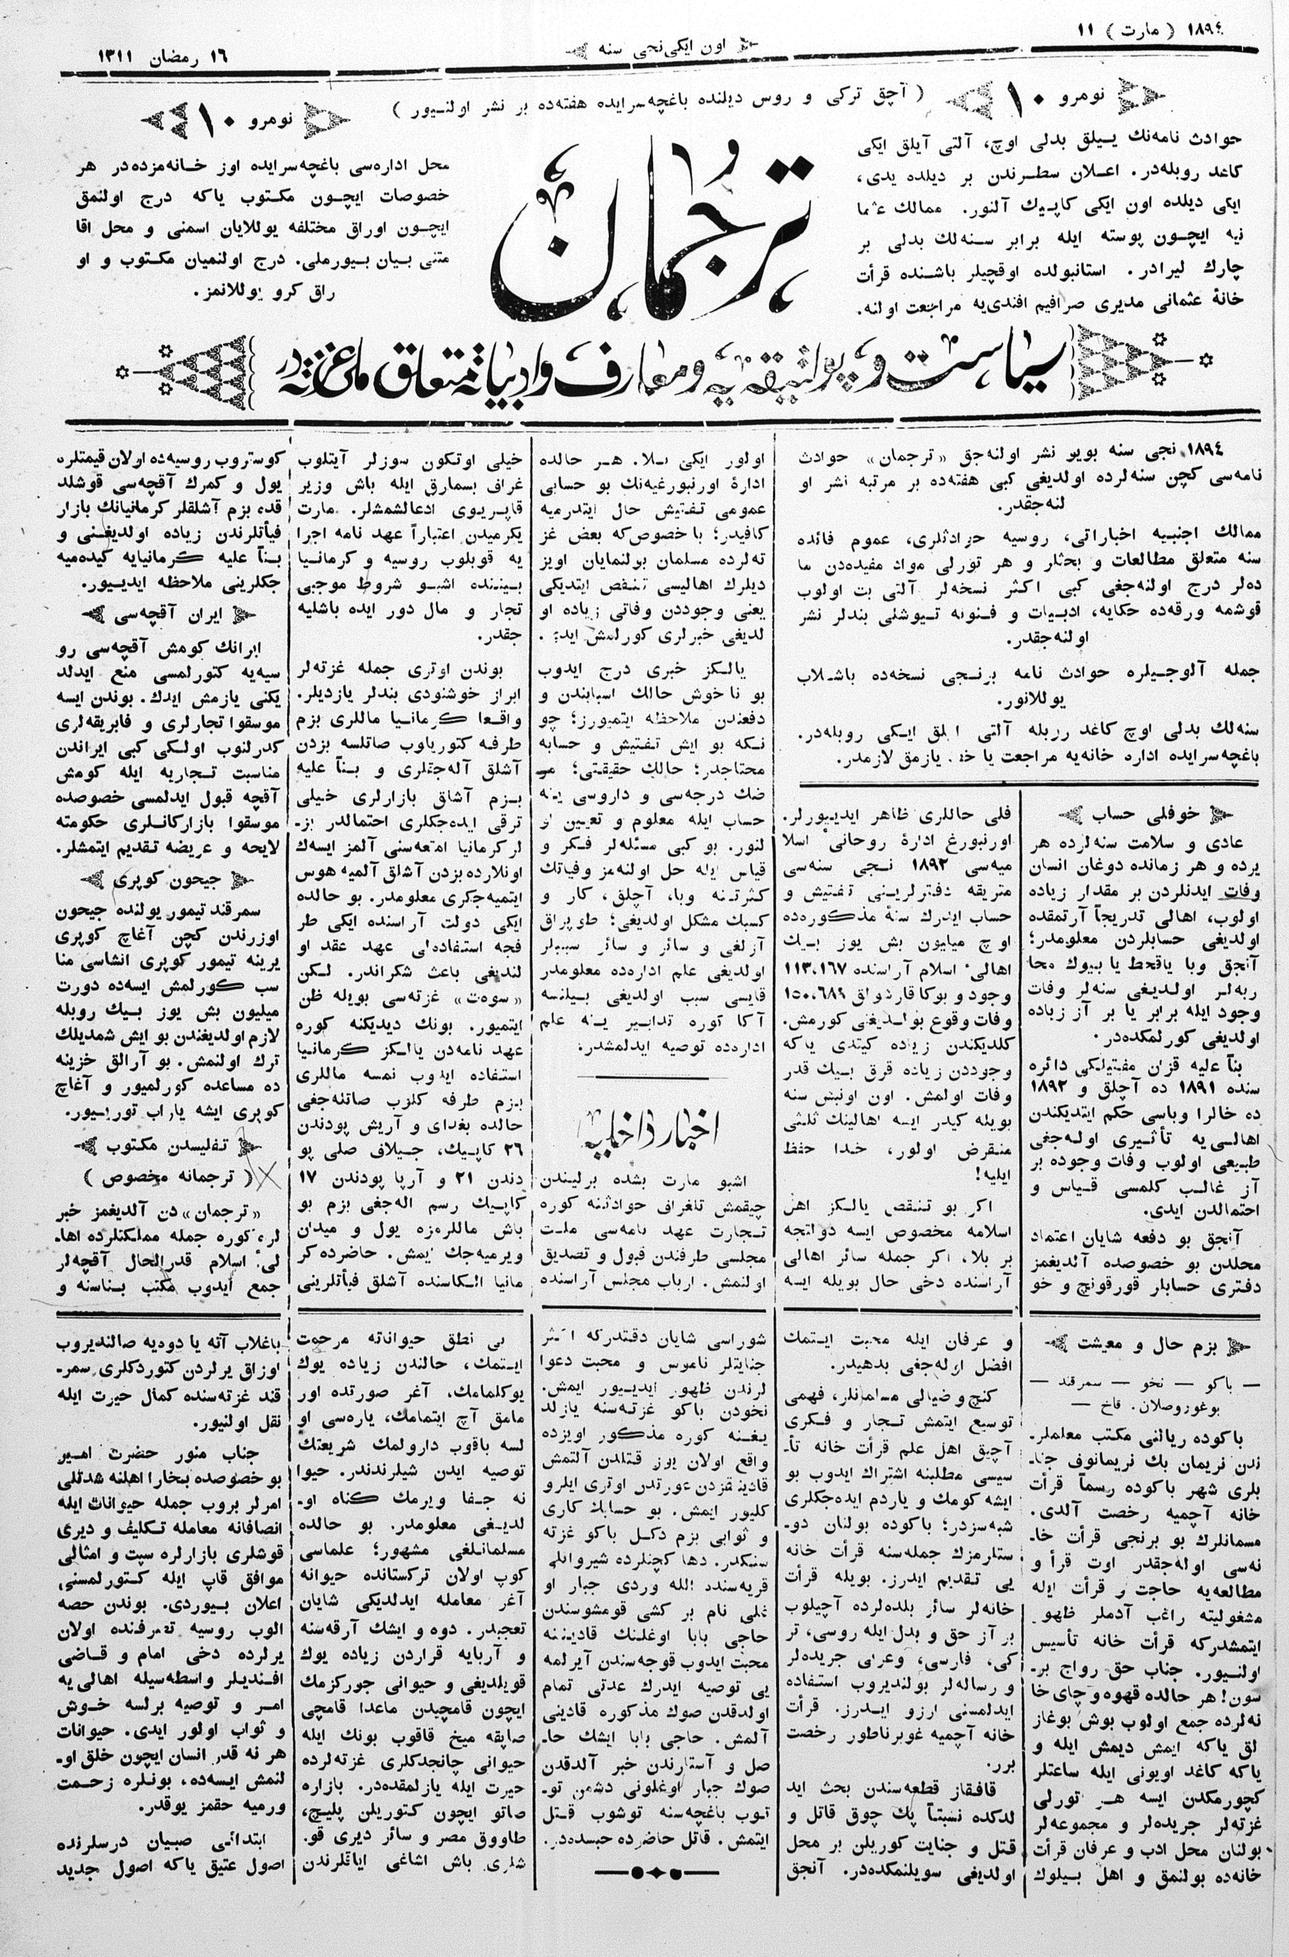 ١٨٩٤ ( مارت ) ١١
اون ایکی نجی سنه
١٦ رمضان ١٣١١
نومرو ١٠
( آچق ترکی و روس دیلنده باغچه‌سرایده هفته‌ده بر نشر اولنیور )
نومرو ١٠
حوادث نامه‌نك ییلق بدلی اوچ، آلتی آیلق ایکی
کاغد روبله‌در. اعلان سطرندن بر دیلده یدی،
ایکی دیلده اون ایکی کاپیك آلنور. ممالك عثما
نیه ایچون پوسته ایله برابر سنه‌لك بدلی بر
چارك لیرادر. استانبولده اوقچیلر باشنده قرأت
خانهٔ عثمانی مدیری صرافیم افندی‌یه مراجعت اولنه.
ترجمان
محل اداره‌سی باغچه‌سرایده اوز خانه‌مزده‌در هر
خصوصات ایچون مکتوب یاکه درج اولنمق
ایچون اوراق مختلفه یوللایان اسمنی و محل اقا
متنی بیان بیورملی. درج اولنمیان مکتوب و او
راق کرو یوللانمز.
سیاست و پولتیقه‌یه و معارف و ادبیاته متعلق ملی غزته‌در
١٨٩٤ نجی سنه بویو نشر اولنه‌جق «ترجمان» حوادث
نامه‌سی کچن سنه‌لرده اولدیغی کبی هفته‌ده بر مرتبه نشر او
لنه‌جقدر.
ممالك اجنبیه اخباراتی، روسیه حوادثلری، عموم فائده
سنه متعلق مطالعات و بحثلر و هر تورلی مواد مفیده‌دن ما
ده‌لر درج اولنه‌جغی کبی اکثر نسخه‌لر آلتی بت اولوب
قوشمه ورقه‌ده حکایه، ادبیات و فنونه تیوشلی بندلر نشر
اولنه‌جقدر.
جمله آلوجیلره حوادث نامه برنجی نسخه‌ده باشلاب
یوللانور.
سنه‌لك بدلی اوچ کاغد روبله آلتی ایلق ایکی روبله‌در.
باغچه‌سرایده اداره خانه‌یه مراجعت یا خط یازمق لازمدر.
خوفلی حساب
عادی و سلامت سنه‌لرده هر
یرده و هر زمانده دوغان انسان
وفات ایدنلردن بر مقدار زیاده
اولوب، اهالی تدریجاً آرتمقده
اولدیغی حسابلردن معلومدر؛
آنجق وبا یاقحط یا بیوك محا
ربه‌لر اولدیغی سنه‌لر وفات
وجود ایله برابر یا بر آز زیاده
اولدیغی کورلمکده‌در.
بنأ علیه قزان مفتیلکی دائره
سنده ١٨٩١ ده آچلق و ١٨٩٢
ده خالرا وباسی حکم ایتدیکندن
اهالی‌یه تأثیری اوله‌جغی
طبیعی اولوب وفات وجوده بر
آز غالب کلمسی قیاس و
احتمالدن ایدی.
آنجق بو دفعه شایان اعتماد
محلدن بو خصوصده آلدیغمز
دفتری حسابلر قورقونچ و خو
فلی حاللری ظاهر ایدییورلر.
اورنبورغ ادارهٔ روحانی اسلا
میه‌سی ١٨٩٢ نجی سنه‌سی
متریقه دفترلرینی تفتیش و
حساب ایدرك سنهٔ مذکوره‌ده
اوچ میلیون بش یوز بیك
اهالیٔ اسلام آراسنده ١١٣.١٦٧
وجود و بوکا قارشولق ١٥٠.٦٨٩
وفات وقوع بولدیغی کورمش.
کلدیکندن زیاده کیتدی یاکه
وجوددن زیاده قرق بیك قدر
وفات اولمش. اون اونبش سنه
بویله کیدر ایسه اهالینك ثلثی
منقرض اولور، خدا حفظ
ایلیه!
اکر بو تنقص یالکز اهل
اسلامه مخصوص ایسه دواتجه
بر بلا، اکر جمله سائر اهالی
آراسنده دخی حال بویله ایسه
اولور ایکی بلا. هر حالده
ادارهٔ اورنبورغیه‌نك بو حسابی
عمومی تفتیش حال ایتدرمیه
کافیدر؛ با خصوص‌که بعض غز
ته‌لرده مسلمان بولنمایان اویز
دیلرك اهالیسی تنقص ایتدیکی
یعنی وجوددن وفاتی زیاده او
لدیغی خبرلری کورلمش ایدی.
یالکز خبری درج ایدوب
بو ناخوش حالك اسبابندن و
دفعندن ملاحظه ایتمیورز؛ چو
نکه بو ایش تفتیش و حسابه
محتاجدر؛ حالك حقیقتی؛ مر
ضك درجه‌سی و داروسی ینه
حساب ایله معلوم و تعیین او
لنور. بو کبی مسئله‌لر فکر و
قیاس ایله حل اولنه‌مز وفیاتك
کثرتنه وبا، آچلق، کار و
کسبك مشکل اولدیغی؛ طوپراق
آزلغی و سائر و سائر سببلر
اولدیغی علم اداره‌ده معلومدر
قایسی سبب اولدیغی بیلنسه
آکا کوره تدابیر ینه علم
اداره‌ده توصیه ایدلمشدر.
اخبار داخلیه
اشبو مارت بشده برلیندن
چیقمش تلغراف حوادثنه کوره
تجارت عهد نامه‌سی ملت
مجلسی طرفندن قبول و تصدیق
اولنمش. ارباب مجلس آراسنده
خیلی اوتکون سوزلر آیتلوب
غراف بسمارق ایله باش وزیر
قاپریوی ادعالشمشلر. مارت
یکرمیدن اعتباراً عهد نامه اجرا
یه قویلوب روسیه و کرمانیا
بیننده اشبو شروط موجبی
تجار و مال دور ایده باشلیه
جقدر.
بوندن اوتری جمله غزته‌لر
ابراز خوشنودی بندلر یازدیلر.
واقعا کرمانیا ماللری بزم
طرفه کتوریلوب صاتلسه بزدن
آشلق آله‌جقلری و بنأ علیه
بزم آشلق بازارلری خیلی
ترقی ایده‌جکلری احتمالدر بز-
لر کرمانیا امتعه‌سنی آلمز ایسه‌ك
اونلارده بزدن آشلق آلمیه هوس
ایتمیه‌جکری معلومدر. بو حالده
ایکی دولت آراسنده ایکی طر
فجه استفاده‌لی عهد عقد او
لندیغی باعث شکراندر. لکن
«سوه‌ت» غزته‌سی بویله ظن
ایتمیور. بونك دیدیکنه کوره
عهد نامه‌دن یالکز کرمانیا
استفاده ایدوب نمسه ماللری
بزم طرفه کلوب صاتله‌جغی
حالده بغدای و آریش پودندن
٢٦ کاپیك، جیلاف صلی پو
دندن ٢١ و آرپا پودندن ١٧
کاپیك رسم اله‌جغی بزم بو
باش ماللرمزه یول و میدان
ویرمیه‌جك ایمش. حاضرده کر
مانیا الکاسنده آشلق فیأتلرینی
کوستروب روسیه‌ده اولان قیمتلره
یول و کمرك آقچه‌سی قوشلد
قده بزم آشلقلر کرمانیانك بازار
فیأتلرندن زیاده اولدیغنی و
بنأ علیه کرمانیایه کیده‌میه
جکلرینی ملاحظه ایدییور.
ایران آقچه‌سی
ایرانك کومش آقچه‌سی رو
سیه‌یه کتورلمسی منع ایدلد
یکنی یازمش ایدك. بوندن ایسه
موسقوا تجارلری و فابریقه‌لری
کدرلنوب اولکی کبی ایراندن
مناسبت تجاریه ایله کومش
آقچه قبول ایدلمسی خصوصده
موسقوا بازارکانلری حکومته
لایحه و عریضه تقدیم ایتمشلر.
جیحون کوپری
سمرقند تیمور یولنده جیحون
اوزرندن کچن آغاچ کوپری
یرینه تیمور کوپری انشاسی منا
سب کورلمش ایسه‌ده دورت
میلیون بش یوز بیك روبله
لازم اولدیغندن بو ایش شمدیلك
ترك اولنمش. بو آرالق خزینه
ده مساعده کورلمیور و آغاچ
کوپری ایشه یاراب توریبور.
تفلیسدن مکتوب
( ترجمانه مخصوص )
«ترجمان» دن آلدیغمز خبر
لره کوره جمله مملکتلرده اها-
لیٔ اسلام قدرالحال آقچه‌لر
جمع ایدوب مکتب بناسنه و
بزم حال و معیشت
— باکو — نخو — سمرقند —
بوغوروصلان. قاخ —
باکوده ریالنی مکتب معلملر-
ندن نریمان بك نریمانوف جنا-
بلری شهر باکوده رسماً قرأت
خانه آچمیه رخصت آلدی.
مسلمانلرك بو برنجی قرأت خا-
نه‌سی اوله‌جقدر اوت قرأ و
مطالعه‌یه حاجت و قرأت ایله
مشغولیته راغب آدملر ظهور
ایتمشدرکه قرأت خانه تأسیس
اولنیور. جناب حق رواج بر-
سون! هر حالده قهوه و چای خا
نه‌لرده جمع اولوب بوش بوغاز
لق یاکه ایمش دیمش ایله و
یاکه کاغد اویونی ایله ساعتلر
کچورمکدن ایسه هر تورلی
غزته‌لر جریده‌لر و مجموعه‌لر
بولنان محل ادب و عرفان قرأت
خانه‌ده بولنمق و اهل بیلوك
و عرفان ایله محبت ایتمك
افضل اوله‌جغی بدهیدر.
کنچ و ضیالی مسلمانلر، فهمی
توسیع ایتمش تجار و فکری
آچیق اهل علم قرأت خانه تأ-
سیسی مطلبنه اشتراك ایدوب بو
ایشه کومك و یاردم ایده‌جکلری
شبه‌سزدر؛ باکوده بولنان دو-
ستلرمزك جمله‌سنه قرأت خانه
یی تقدیم ایدرز. بویله قرأت
خانه‌لر سائر بلده‌لرده آچیلوب
بر آز حق و بدل ایله روسی، تر
کی، فارسی، وعربی جریده‌لر
و رساله‌لر بولندیروب استفاده
ایدلمسنی ارزو ایدرز. قرأت
خانه آچمیه غوبرناطور رخصت
برر.
قافقاز قطعه‌سندن بحث اید
لدکده نسبتاً پك چوق قاتل و
قتل و جنایت کوریلن بر محل
اولدیغی سویلنمکده‌در. آنجق
شوراسی شایان دقتدرکه اکثر
جنایتلر ناموس و محبت دعوا
لرندن ظهور ایدییور ایمش.
نخودن باکو غزته‌سنه یازلد
یغنه کوره مذکور اویزده
واقع اولان یوز قتلدن آلتمش
قادینقزدن عورتدن اوتری ایلرو
کلیور ایمش. بو حسابك کاری
و ثوابی بزم دکل باکو غزته
سنکدر. دها کچنلرده شیروانلی
قریه‌سنده الله وردی جبار او
غلی نام بر کشی قومشوسندن
حاجی بابا اوغلنك قادیننه
محبت ایدوب قوجه‌سندن آیرلمه
یی توصیه ایدرك عدتی تمام
اولدقدن صوك مذکوره قادینی
آلمش. حاجی بابا ایشك حا-
صل و آستارندن خبر آلدقدن
صوك جبار اوغلونی دشمن تو-
توب باغچه‌سنه توشوب قتل
ایتمش. قاتل حاضرده حبسده‌در.
بی نطق حیواناته مرحمت
ایتمك، حالندن زیاده یوك
یوکلمامك، آغر صورتده اور
مامق آچ ایتمامك، یاره‌سی او
لسه باقوب دارولمك شریعتك
توصیه ایدن شیلرندندر. حیوا
نه جفا ویرمك کناه او-
لدیغی معلومدر. بو حالده
مسلمانلغی مشهور؛ علماسی
کوپ اولان ترکستانده حیوانه
آغر معامله ایدلدیکی شایان
تعجبدر. دوه و ایشك آرقه‌سنه
و آربایه قراردن زیاده یوك
قویلدیغی و حیوانی جورکزمك
ایچون قامچیدن ماعدا قامچی
صاپقه میخ قاقوب بونك ایله
حیوانی چانجدکلری غزته‌لرده
حیرت ایله یازلمقده‌در. بازاره
صاتو ایچون کتوریلن پلیچ،
طاووق مصر و سائر دیری قو-
شلری باش اشاغی ایاقلرندن
باغلاب آته یا دوه‌یه صالندیروب
اوزاق یرلردن کتوردکلری سمر-
قند غزته‌سنده کمال حیرت ایله
نقل اولنیور.
جناب منور حضرت امیر
بو خصوصده بخارا اهلنه شدتلی
امرلر بروب جمله حیوانات ایله
انصافانه معامله تکلیف و دیری
قوشلری بازارلره سپت و امثالی
موافق قاپ ایله کتورلمسنی
اعلان بیوردی. بوندن حصه
الوب روسیه تصرفنده اولان
یرلرده دخی امام و قاضی
افندیلر واسطه‌سیله اهالی‌یه
امر و توصیه برلسه خوش
و ثواب اولور ایدی. حیوانات
هر نه قدر انسان ایچون خلق او-
لنمش ایسه‌ده، بونلره زحمت
ورمیه حقمز یوقدر.
ابتدائی صبیان درسلرنده
اصول عتیق یاکه اصول جدید